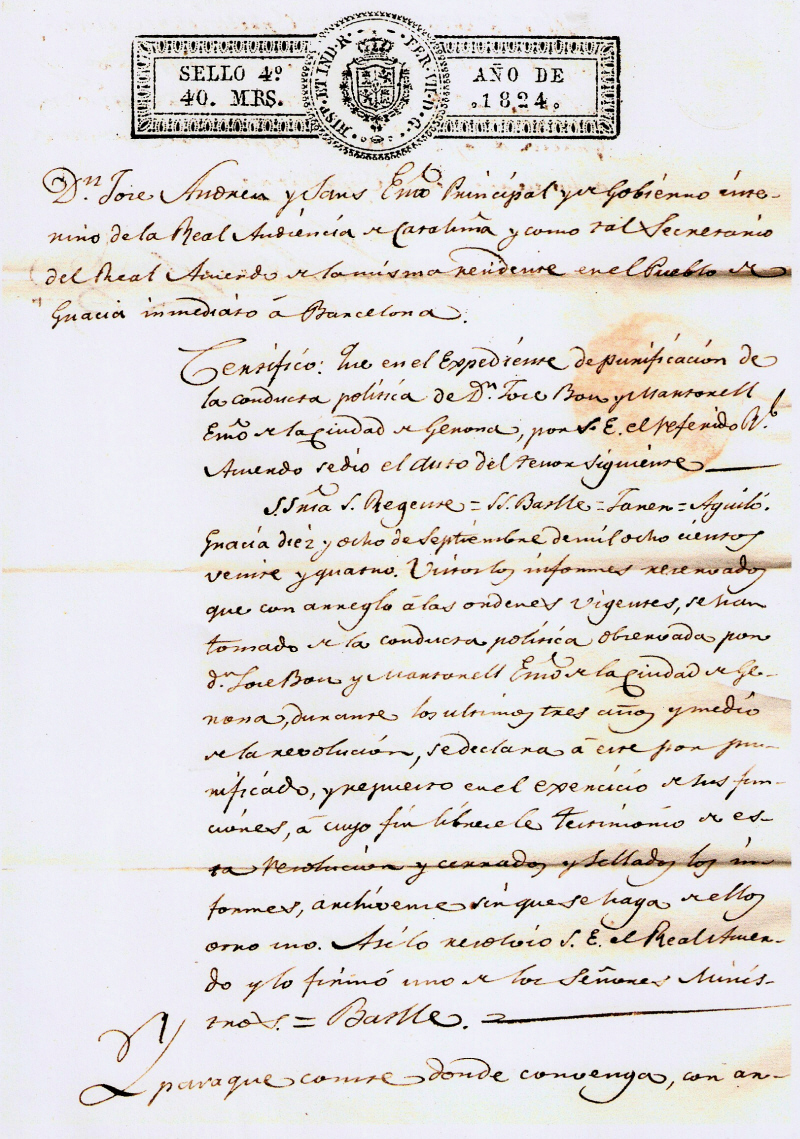 SELLO 4º
40. MRS.
HISP. ET IND. R. FER. VII. D. G.
AÑO DE
1824.
Dn. Jose Andreu y Sans Esno. Principal y de Gobierno inte-
rino de la Real Audiencia de Cataluña y como tal Secretario
del Real Acuerdo de la misma residente en el Pueblo de
Gracia inmediato á Barcelona.
Certifico: Que en el Expediente de purificacion de
la conducta politica de Dn. Jose Bou y Martorell
Esno. de la Ciudad de Gerona, por S. E. el referido Rl.
Acuerdo se dio el auto del tenor siguiente
S. Sria. S. Regente = SS. Barlle = Janer = Aguiló.
Gracia diez y ocho de Septiembre de mil ocho cientos
veinte y quatro. Vistos los informes reservados
que con arreglo á las ordenes vigentes, se han
tomado de la conducta politica observada por
dn. Jose Bou y Martorell Esno. de la Ciudad de Ge-
rona, durante los ultimos tres años y medio
de la revolucion, se declara á este por pu-
rificado, y repuesto en el exercicio de sus fun-
ciones, á cuyo fin librese le testimonio de es-
ta resolucion y cerrados y sellados los in-
formes, archivense sin que se haga de ellos
otro uso. Asi lo resolvio S. E. el Real Acuer-
do y lo firmó uno de los Señores Minis-
tros. = Barlle. =
Y
para que conste donde convenga, con ar-